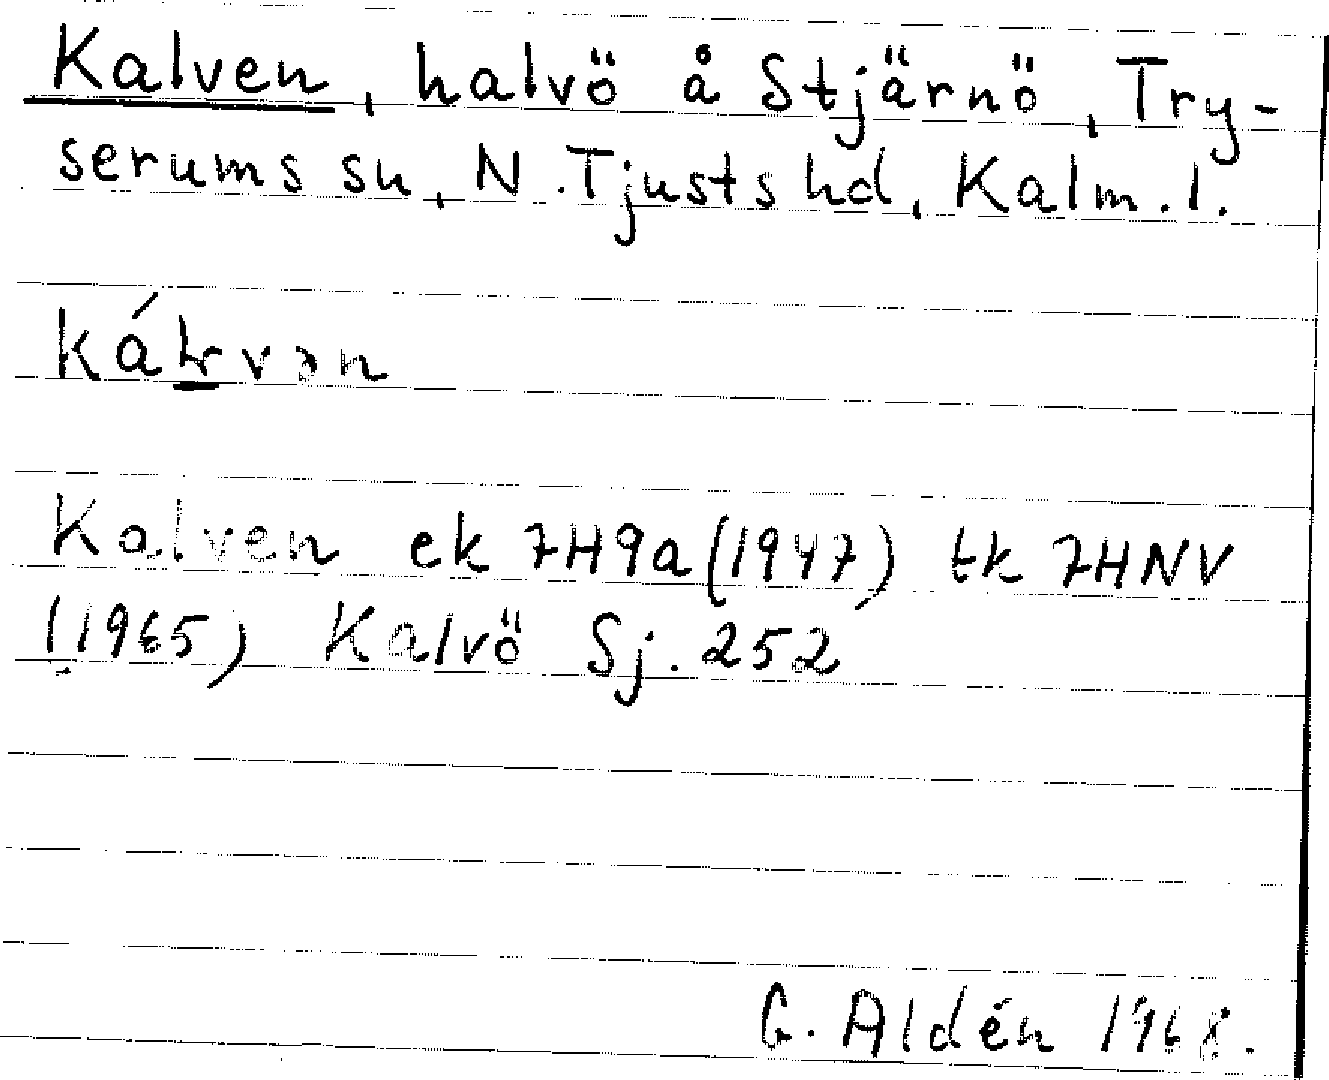 Kalven, halvö å Stjärnö, Try-
serums sn, N. Tjusts hd, Kalm. l.
Kalven ek 7H9a (1947) tk 7HNV
(1965) Kalvö Sj. 252
G. Aldén 1968.